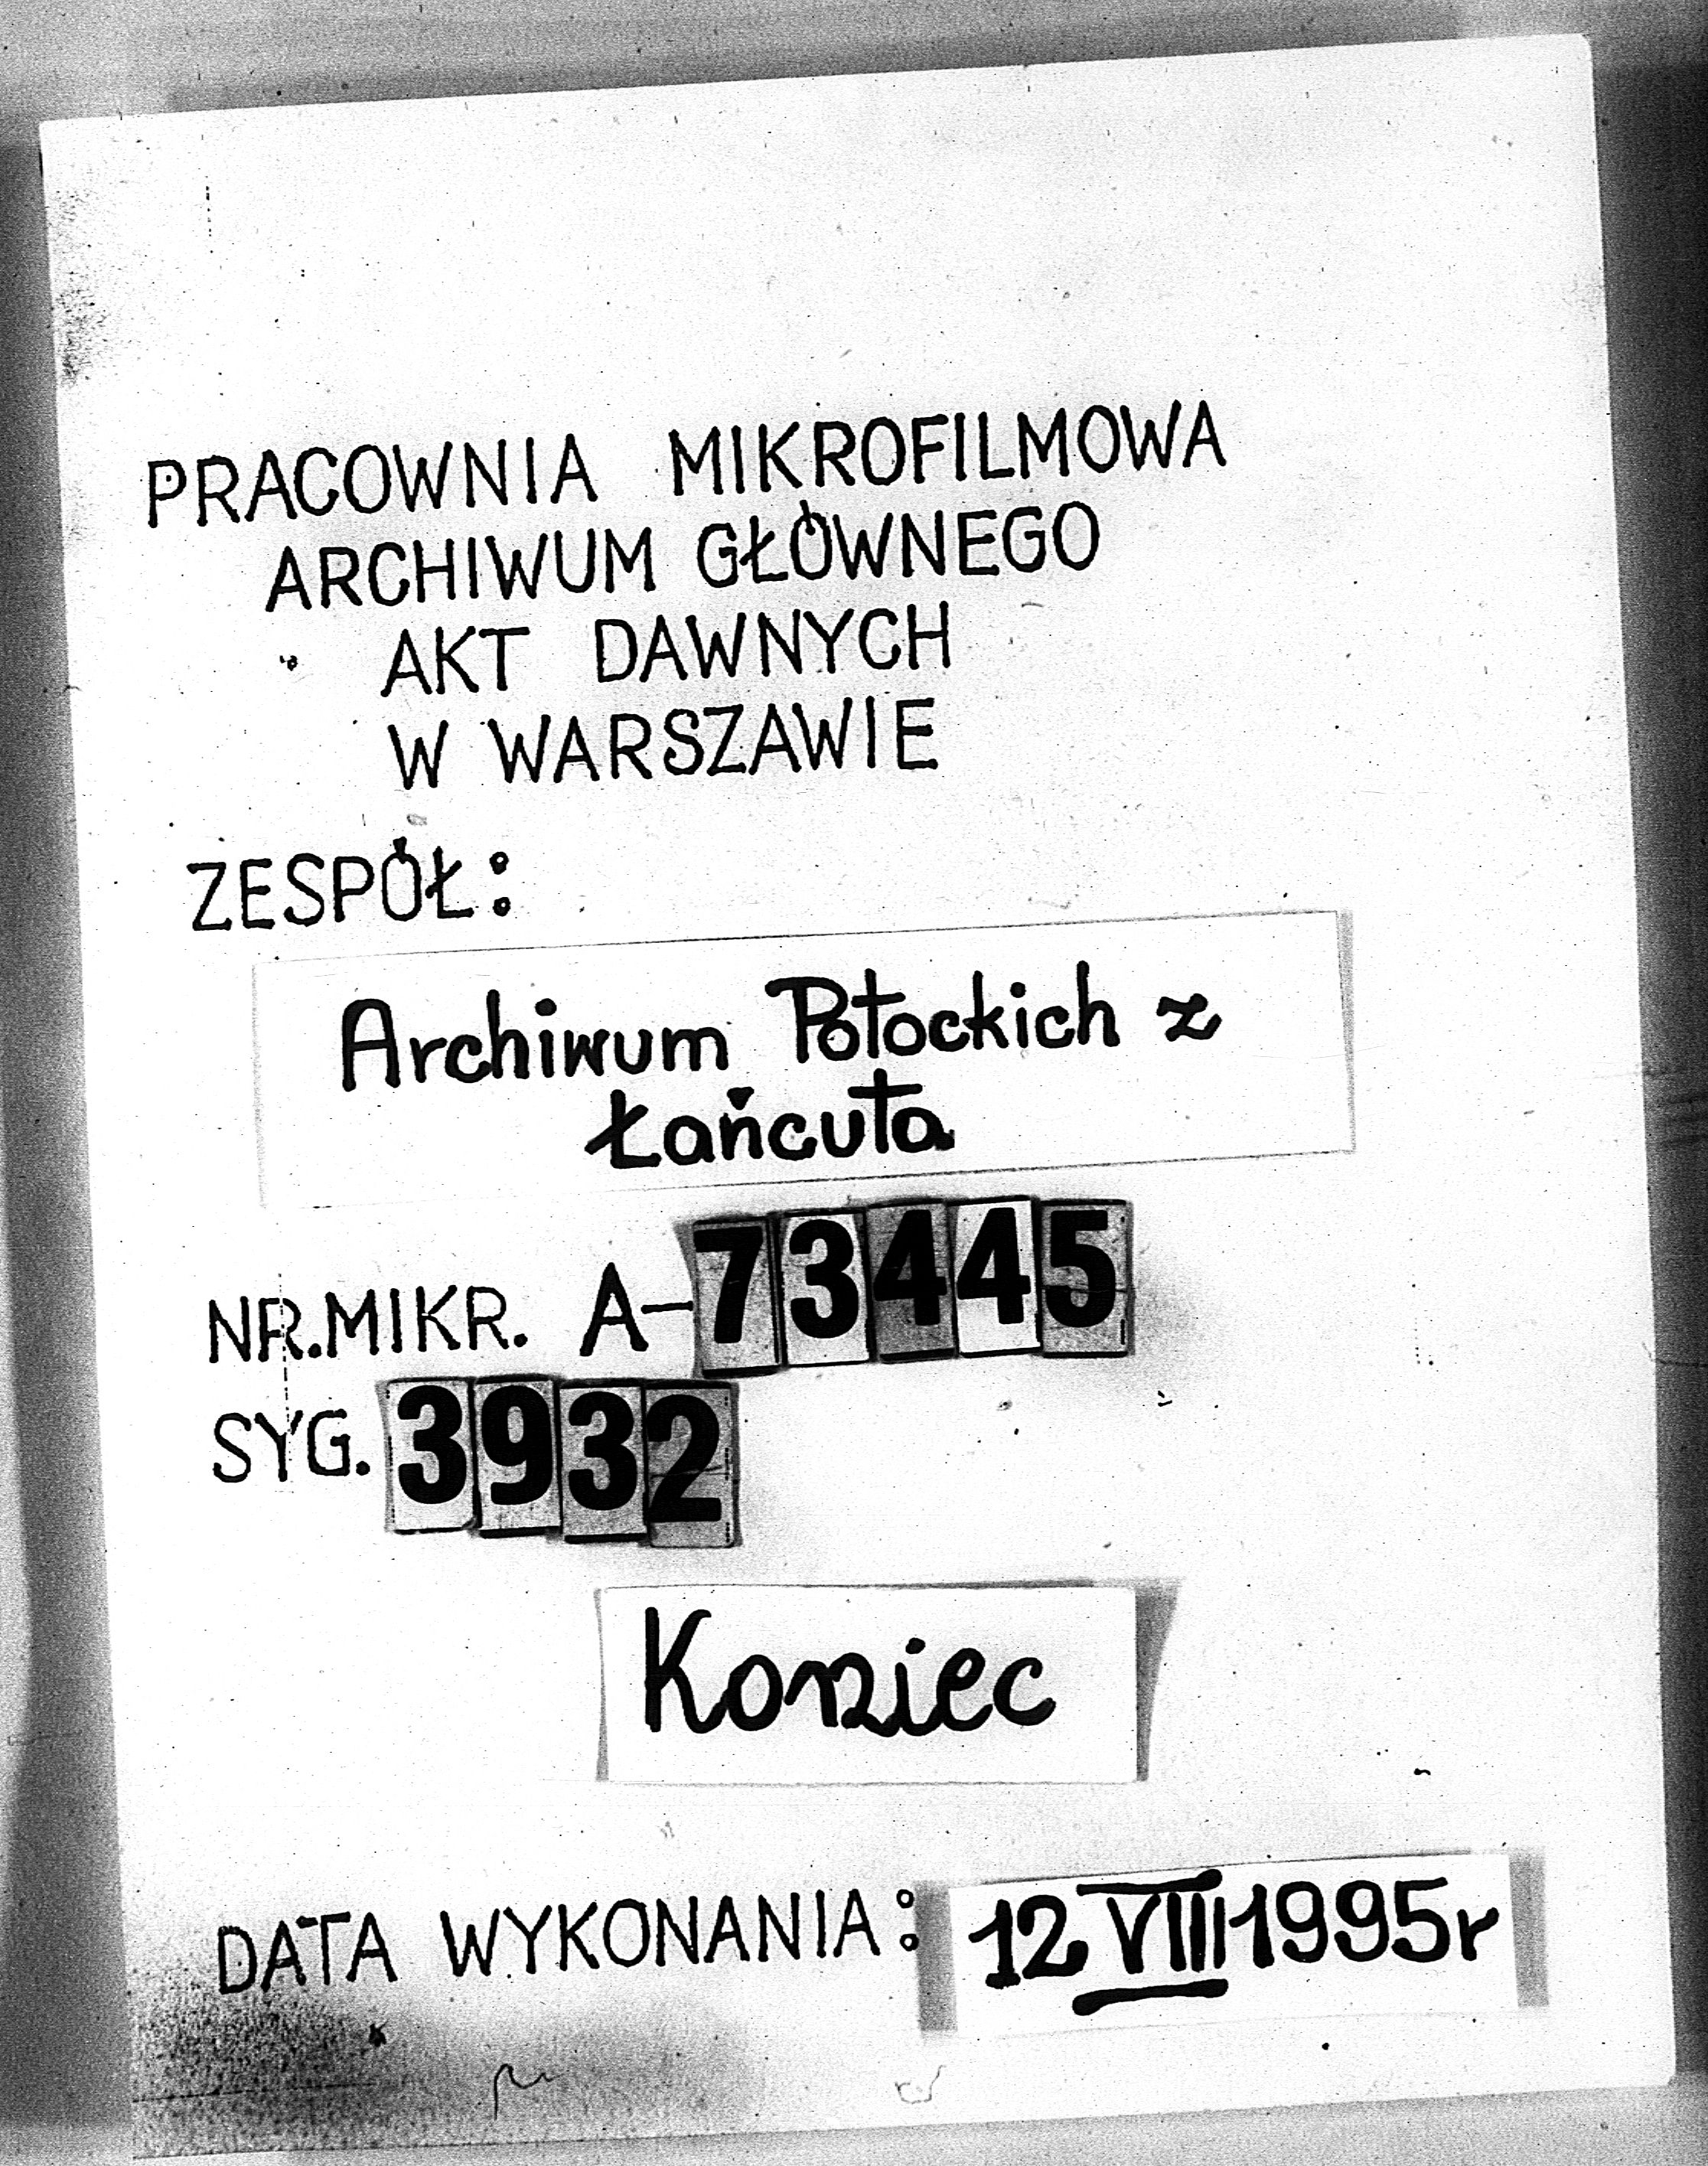 PRACOWNIA MIKROFILMOWA
ARCHIWUM GŁÓWNEGO
AKT DAWNYCH
W WARSZAWIE
ZESPÓŁ:
Archiwum Potockich z
Łańcuta
NR.MIKR. A-73445
SYG. 3932
Koniec
DATA WYKONANIA: 12 VIII 1995r